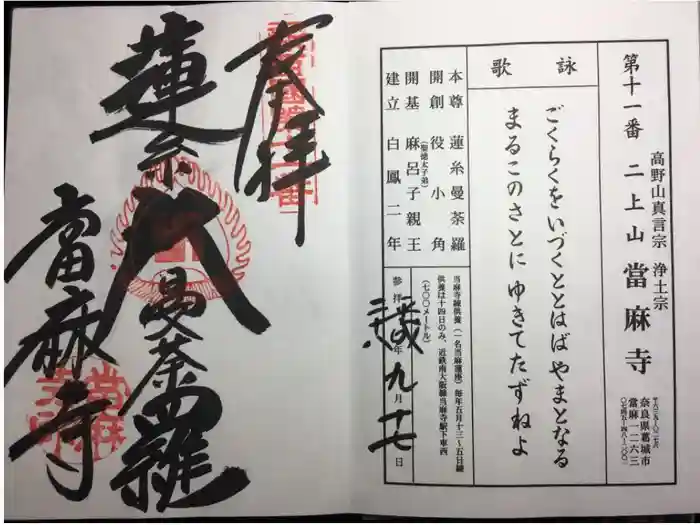 第十一番 二上山 當麻寺
高野山真言宗 浄土宗
奈良県葛城市
當麻一二六三
詠歌
ごくらくをいづくととはばやまとなる
まるこのさとにゆきてたずねよ
本尊 蓮糸曼荼羅
開創 役小角
開基 麻呂子親王
(聖徳太子弟)
建立 白鳳二年
当麻寺練供養(一名当麻蓮座)毎年五月十三〜五日練
供養は十四日のみ、近鉄南大阪線当麻寺駅下車西
(七〇〇メートル)
参拝 年九月十七日
奉拝
蓮糸大曼荼羅
當麻寺